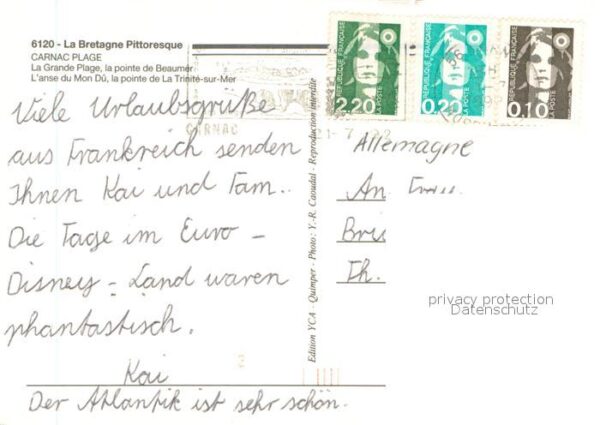 6120 - La Bretagne Pittoresque
CARNAC PLAGE
La Grande Plage, la pointe de Beaumer
L'anse du Mon Dû, la pointe de La Trinité-sur-Mer
Viele Urlaubsgrüße
aus Frankreich senden
Ihnen Kai und Fam..
Die Tage im Euro -
Disney - Land waren
phantastisch.
Kai
Der Atlantik ist sehr schön.
Edition YCA - Quimper - Photo: Y.-R. Caoudal - Reproduction interdite
CARNAC
RÉPUBLIQUE FRANÇAISE
2.20
LA POSTE
RÉPUBLIQUE FRANÇAISE
0,20
LA POSTE
RÉPUBLIQUE FRANÇAISE
0,10
LA POSTE
Allemagne
An
Bris
Th.
privacy protection
Datenschutz